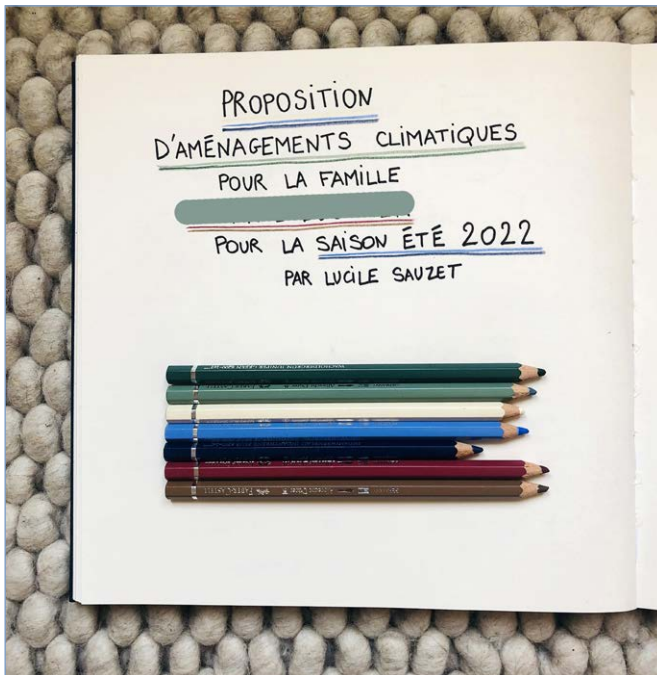 PROPOSITION
D'AMÉNAGEMENTS CLIMATIQUES
POUR LA FAMILLE
POUR LA SAISON ÉTÉ 2022
PAR LUCILE SAUZET
FABER-CASTELL